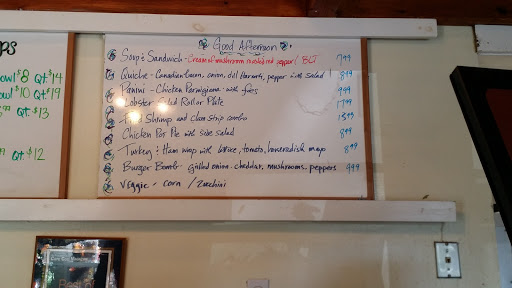 PS
owl $8 Qt $14
owl $10 Qt $19
Qt $13
Qt $12
Good Afternoon
Soup & Sandwich - Cream of mushroom roasted red pepper / BLT 7.99
Quiche - Canadian bacon, onion, dill Havarti, pepper with salad 8.99
Panini - Chicken Parmigiana with fries 9.99
Lobster Salad Roll or Plate 17.99
Fried Shrimp and Clam Strip combo 13.99
Chicken Pot Pie with side salad 8.99
Turkey & Ham wrap with lettuce, tomato, horseradish mayo 8.99
Burger Bomb - grilled onion, cheddar, mushrooms, peppers 9.99
Veggie - corn / Zucchini